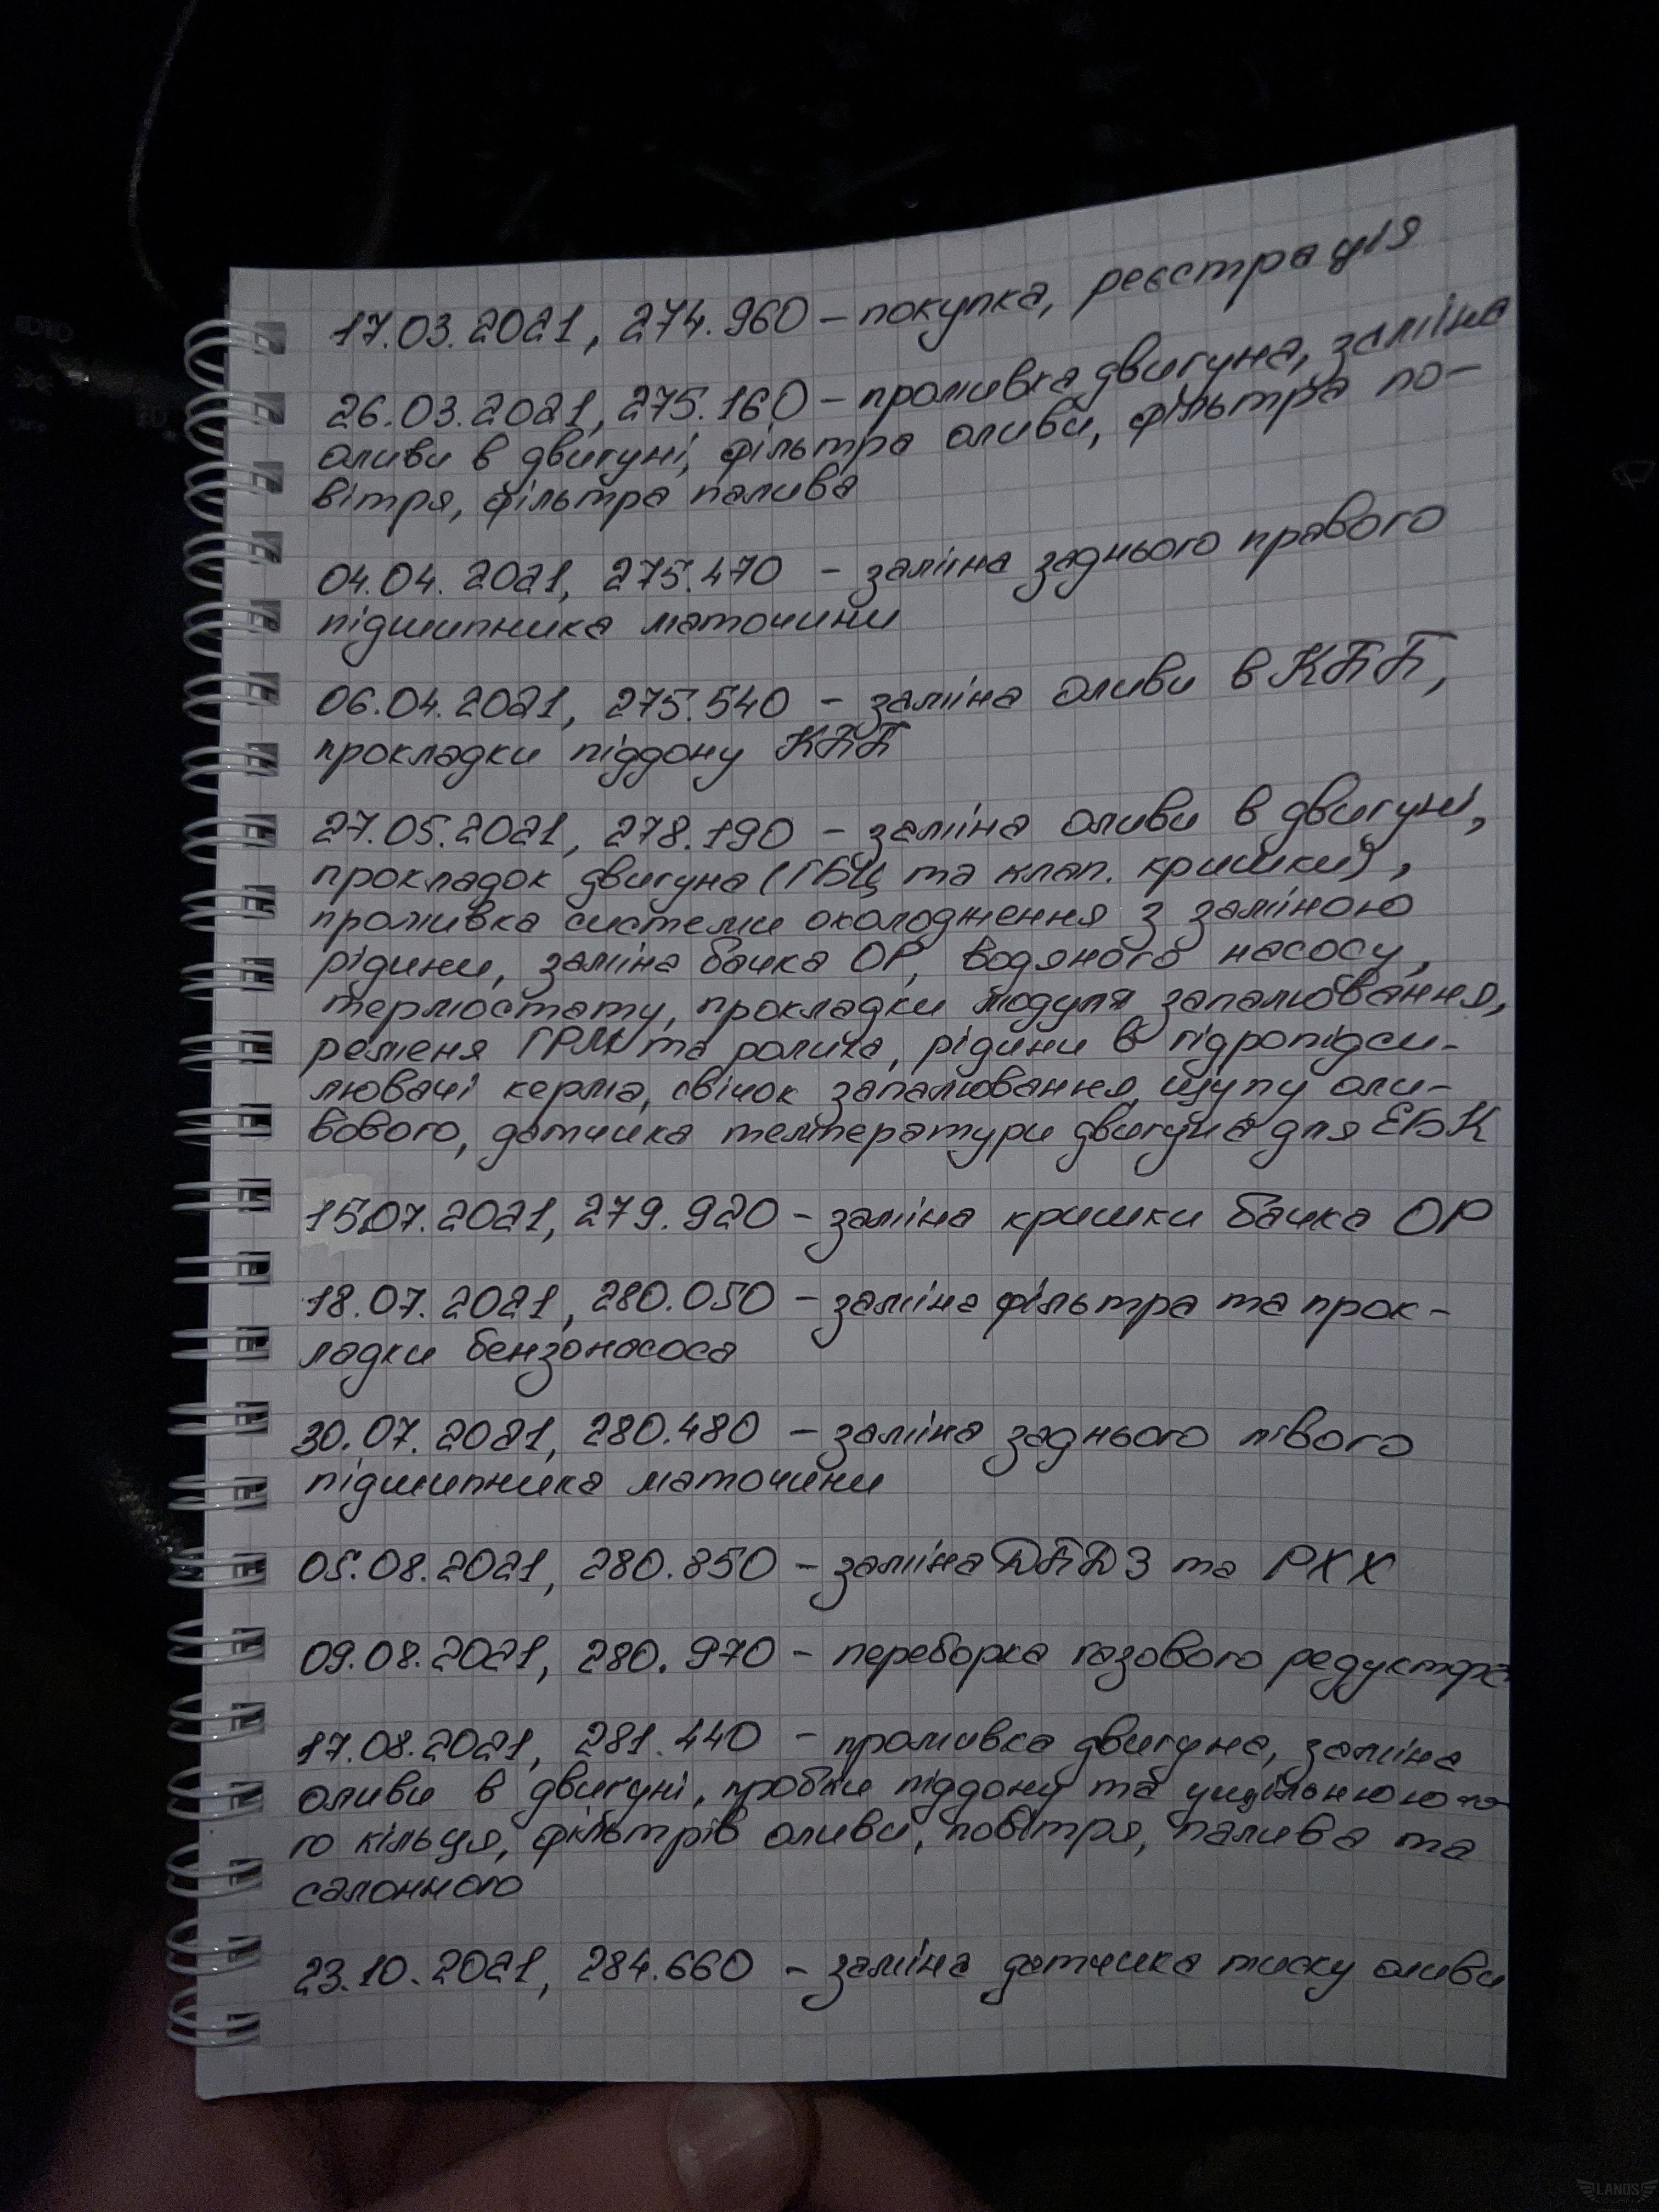 17.03.2021, 274.960 – покупка, реєстрація
26.03.2021, 275.160 – промивка двигуна, заміна
оливи в двигуні, фільтра оливи, фільтра по-
вітря, фільтра палива
04.04.2021, 275.470 – заміна заднього правого
підшипника маточини
06.04.2021, 275.540 – заміна оливи в КПП,
прокладки піддону КПП
27.05.2021, 278.190 – заміна оливи в двигуні,
прокладок двигуна (ГБЦ та клап. кришки),
промивка системи охолодження з заміною
рідини, заміна бачка ОР, водяного насосу,
термостату, прокладки модуля запалювання,
ременя ГРМ та ролика, рідини в гідропідси-
лювачі керма, свічок запалювання, щупу оли-
вового, датчика температури двигуна для ЕБК
15.07.2021, 279.920 – заміна кришки бачка ОР
18.07.2021, 280.050 – заміна фільтра та прок-
ладки бензонасоса
30.07.2021, 280.480 – заміна заднього лівого
підшипника маточини
05.08.2021, 280.850 – заміна ДПДЗ та РХХ
09.08.2021, 280.970 – переборка газового редуктора
17.08.2021, 281.440 – промивка двигуна, заміна
оливи в двигуні, пробки піддону та ущільнюючо-
го кільця, фільтрів оливи, повітря, палива та
салонного
23.10.2021, 284.660 – заміна датчика тиску оливи
LANOS